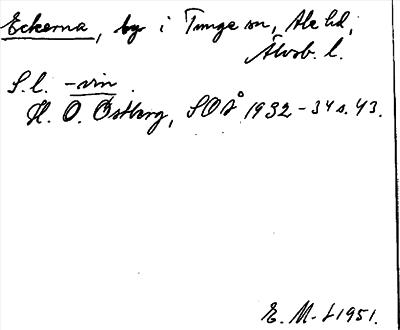 Eckerna, by i Tunge sn, Ale hd,
Älvsb. l.
S.l. -vin.
H. O. Östberg, SOÅ 1932-34 s. 43.
E. M-t 1951.